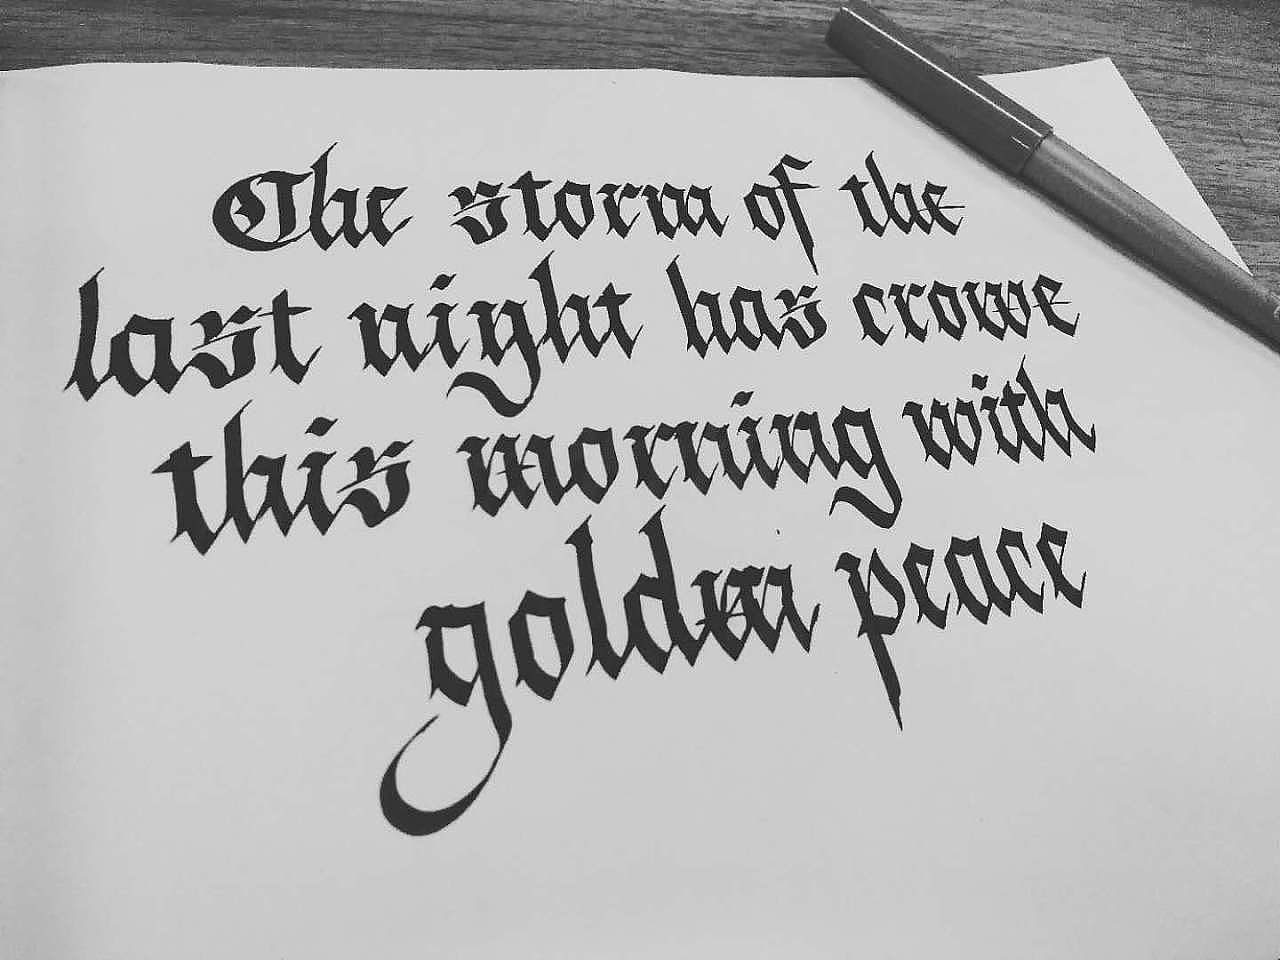 The storm of the
last night has crowe
this morning with
golden peace